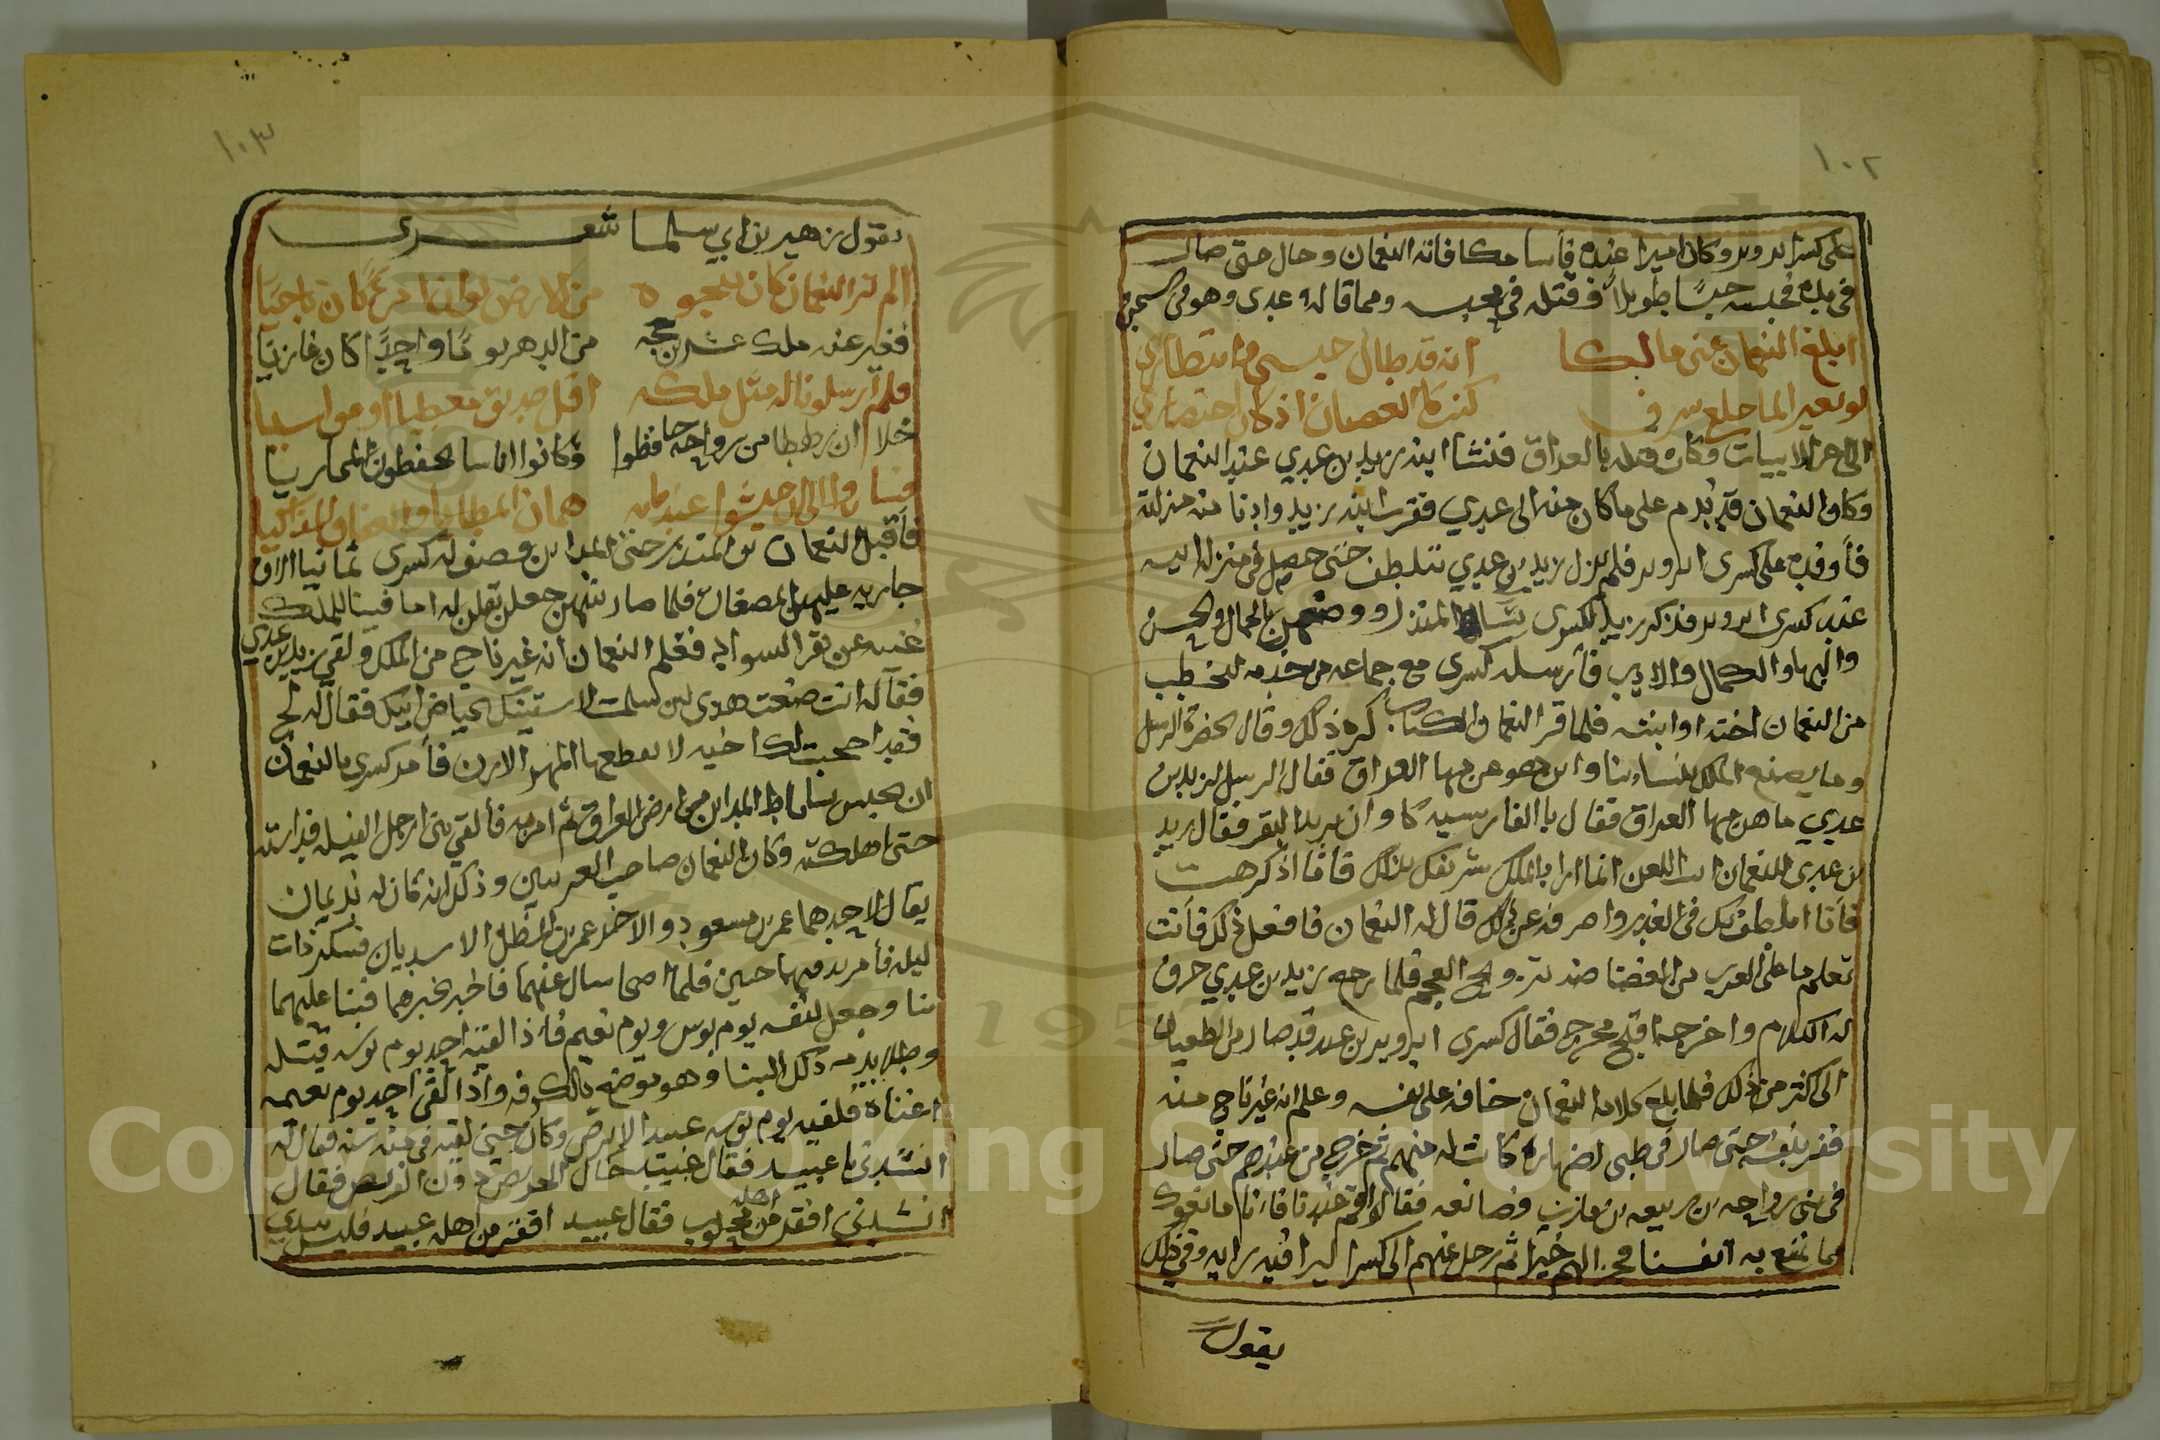 ١٠٢
على كسرا ابرويز وكان اميرا عنده فأسا مكافاته النعمان وحال حتى صار
في يده فحبسه حبسًا طويلاً فقتله في محبسه ومما قاله عدي وهو في السجن
ابلغ النعمان عني مالكا انه قد طال حبسي وانتظاري
لو بغير الما حلقي شرق كنت كالغصان اذ كان اعتصاري
الى اخر الابيات وكان قتله بالعراق فنشا ابنه زيد بن عدي عند النعمان
وكان النعمان قد ندم على ما كان منه الى عدي فقرب ابنه زيد وادنا منه منزلته
فأوفده على كسرى ابرويز فلم يزل زيد بن عدي يتلطف حتى حصل في منزلة ابيه
عند كسرى ابرويز فذكر زيد لكسرى نسا المنذر ووصفهن بالجمال والحسن
والبها والكمال والادب فأرسله كسرى مع جماعه من خدمه للخطب
من النعمان اخته او ابنته فلما قرا النعمان الكتاب كره ذلك وقال بحضرة الرسل
وما يصنع الملك بنساءنا واين هو عن مها العراق فقال الرسل لزيد بن
عدي ما هن مها العراق فقال با الفارسيه كاوان يريد البقر فقال زيد
بن عدي للنعمان ابيت اللعن انما اراد الملك شرفك بذلك فاما اذ كرهت
فأنا اتلطف لك في العذر واصرفه عن ذلك قال له النعمان فافعل ذلك فأنت
تعلم ما على العرب من الغضاضه تزويج العجم فلما رجع زيد بن عدي حرف
له الكلام واخرجه اقبح مخرج فقال كسرى ابرويز بن عبد قد صار من الطغيان
الى اكثر من ذلك فلما بلغ كلامه النعمان خافه على نفسه وعلم انه غير ناج منه
ففر بنفسه حتى صار في طي اصهاره كانت له منهم ثم خرج من عندهم حتى صار
في بني رواحه بن ربيعه بن مازن وضا نعه فقالوا اقم عندنا فانا مانعوك
مما نمنع به انفسنا فجزاهم خيرا ثم رحل عنهم الى كسرا ليرا فيه رايه وفي ذلك
يقول
١٠٣
يقول زهير بن ابي سلما شعرى
الم تر النعمان كان بنجوة من الارض لو ان امرءً كان ناجيَا
فغير عنه ملك عشرين حجه من الدهر يومًا واحدًا كان غازيَا
فلم ار مسلوبا له مثل ملكه اقل صديق معطيا او مواسيا
خلا ان رهطا من رواحه حافظوا وكانوا اناسا يحفظون المخاريا
فأقبل النعمان بن المنذر حتى المداين وصف له كسرى ثمانيا الاف
جاريه عليهن المصغات فلما صار بينهن جعلن يقلن له اما فينا للملك
غنيه عن بقر السواد فعلم النعمان انه غير ناج من الملك ولقي زيد بن عدي
فقال له انت صنعت هذي لين سلمت لاسقينك بحياض ابيك فقال له لج
فقد اصحبت لك اخيه لا يقطعها المهر الارن فأمر كسرى بالنعمان
ان يحبس بساباط المداين من ارض العراق ثم امر به فألقي بين ارجل الفيله فداسته
حتى اهلكته وكان النعمان صاحب الغريين وذكر انه كان له نديمان
يقال لاحدهما عمر بن مسعود والاخر عمر بن المظلل الاسديان فسكر ذات
ليله فأمر بدفنهما حيين فلما اصحا سال عنهما فاخبر بخبرهما فبنا عليهما
بنا وجعل لنفسه يوم بوس ويوم نعيم فاذا لقيه احد يوم بوسه قتله
وطلا بدمه ذلك البنا وهو موضع بالكوفه واذا القي احد يوم نعيمه
اغناه فلقيه يوم بوسه عبيد الابرص وكان حين لقيه في مئة سنه فقال له
انشدني يا عبيد فقال عبيد حال الجريض دون القريض فقال
انشدني اقفر من اهله ملحوب فقال عبيد اقفر من اهله عبيد فليس يبدي